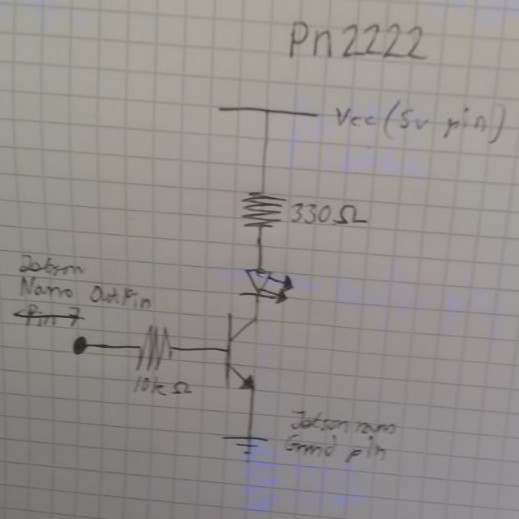 Pn2222
Vcc (5v pin)
330 Ω
Jetson
Nano Out Pin
Pin 7
10k Ω
Jetson nano
Grnd pin